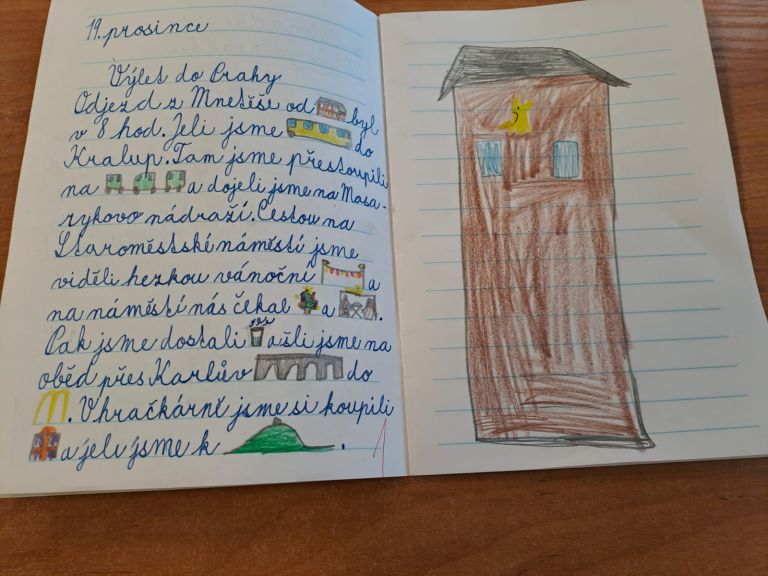 19. prosince
Výlet do Prahy
Odjezd z Mnetěše od byl
v 8 hod. Jeli jsme do
Kralup. Tam jsme přestoupili
na a dojeli jsme na Masa-
rykovo nádraží. Cestou na
Staroměstské náměstí jsme
viděli hezkou vánoční a
na náměstí nás čekal a .
Pak jsme dostali a šli jsme na
oběd přes Karlův do
. V hračkárně jsme si koupili
a jeli jsme k .
1